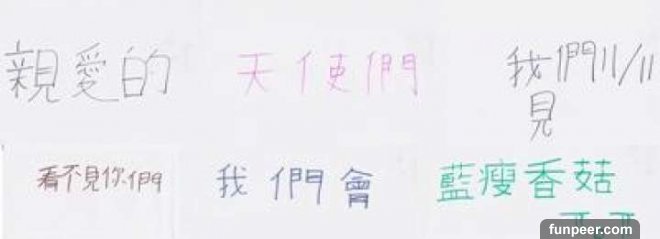 親愛的
天使們
我們11/11
見
看不見你們
我們會
藍瘦香菇
funpeer.com